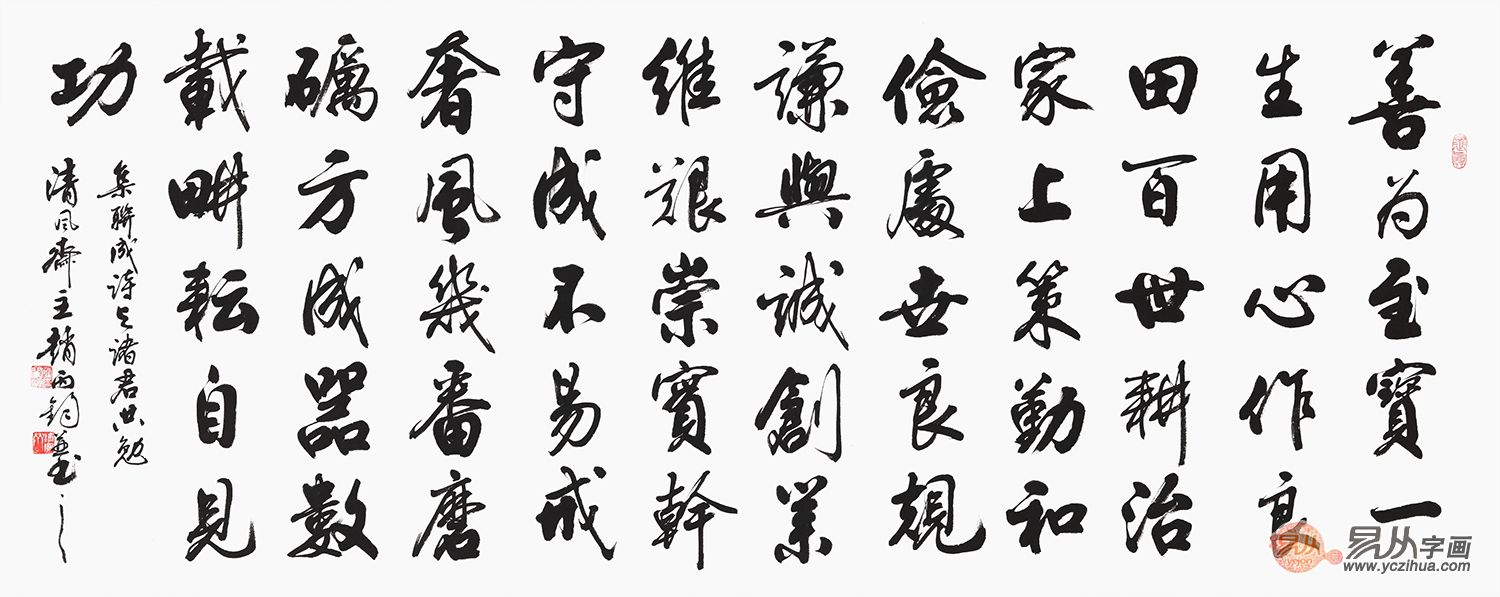 善为至寶一
生用心作良
田百世耕治
家上策勤和
儉處世良規
謙與誠創業
維艱崇實幹
守成不易戒
奢風幾番磨
礪方成器數
載畊耘自見
功
集聯成詩与諸君共勉
清风齋主趙
易从字画
www.yczihua.com